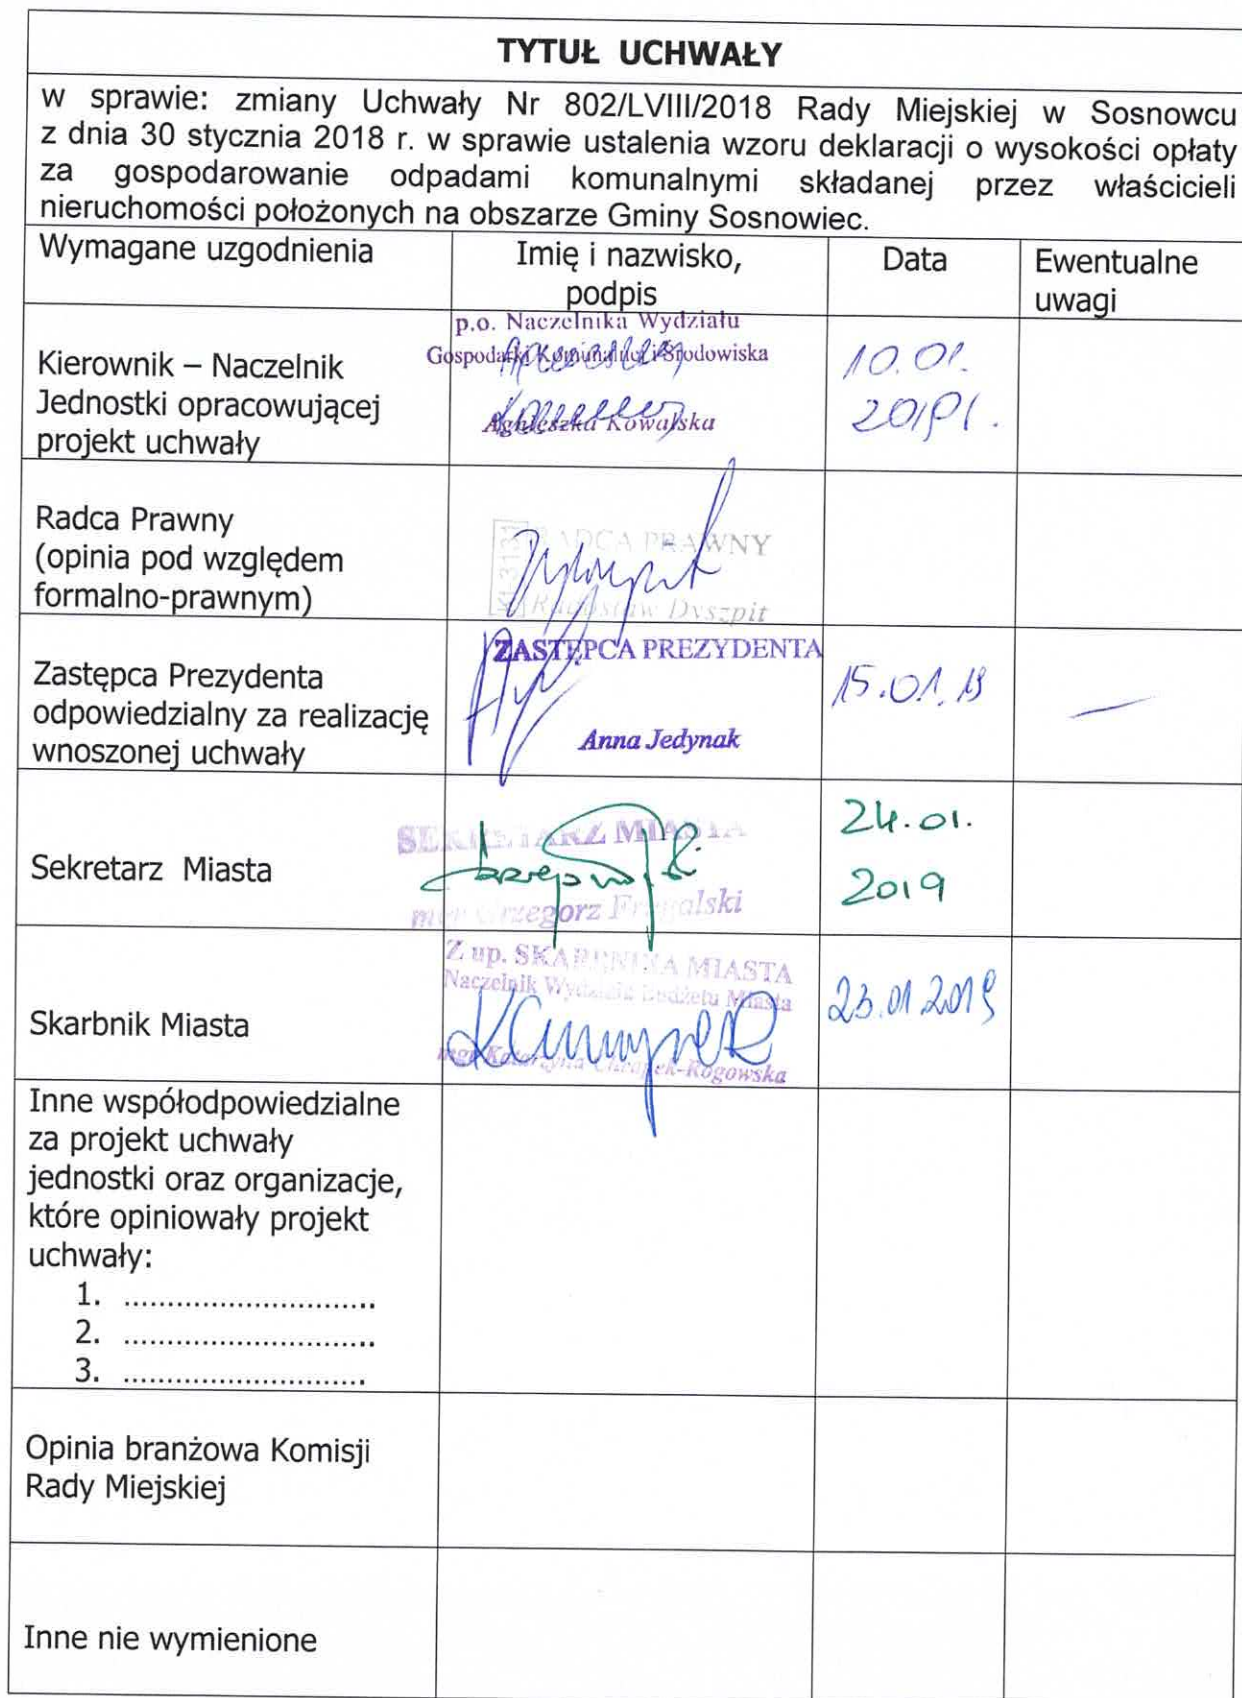 TYTUŁ UCHWAŁY
w sprawie: zmiany Uchwały Nr 802/LVIII/2018 Rady Miejskiej w Sosnowcu
z dnia 30 stycznia 2018 r. w sprawie ustalenia wzoru deklaracji o wysokości opłaty
za gospodarowanie odpadami komunalnymi składanej przez właścicieli
nieruchomości położonych na obszarze Gminy Sosnowiec.
Wymagane uzgodnienia
Imię i nazwisko,
podpis
Data
Ewentualne
uwagi
Kierownik – Naczelnik
Jednostki opracowującej
projekt uchwały
p.o. Naczelnika Wydziału
Gospodarki Komunalnej i Środowiska
Agnieszka Kowalska
10.01.
2019r.
Radca Prawny
(opinia pod względem
formalno-prawnym)
RADCA PRAWNY
Radosław Dyszpit
Zastępca Prezydenta
odpowiedzialny za realizację
wnoszonej uchwały
ZASTĘPCA PREZYDENTA
Anna Jedynak
15.01.19
Sekretarz Miasta
SEKRETARZ MIASTA
mgr Grzegorz
24.01.
2019
Skarbnik Miasta
Z up. SKARBNIKA MIASTA
Naczelnik Wydziału Budżetu Miasta
mgr Katarzyna
23.01.2019
Inne współodpowiedzialne
za projekt uchwały
jednostki oraz organizacje,
które opiniowały projekt
uchwały:
1. .............................
2. .............................
3. ............................
Opinia branżowa Komisji
Rady Miejskiej
Inne nie wymienione